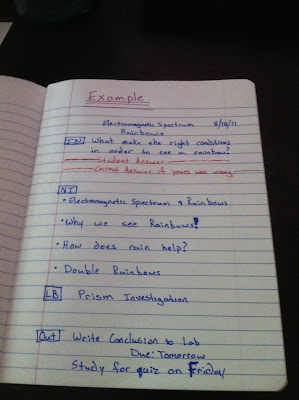 Example
Electromagnetic Spectrum 8/18/11
Rainbows
IN What make the right conditions
in order to see a rainbow?
Student Answer
Correct Answer if yours was wrong
NT
• Electromagnetic Spectrum & Rainbows
• Why we see Rainbows!
• How does rain help?
• Double Rainbows
LB Prism Investigation
Out Write Conclusion to Lab
Due: Tomorrow
Study for quiz on Friday